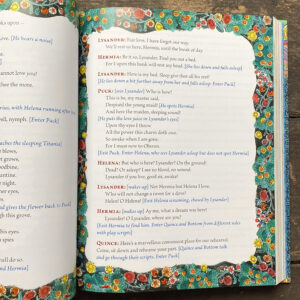 akes upon –
[He hears a noise]
cannot love you!
se the more.
rius, with Helena running after
ell, nymph. [Enter Puck]
ches the sleeping Titania]
blows,
grows,
e,
ne,
ht,
and gives the flower back to Puck]
Hermia]
LYSANDER: Fair love, I have forgot our way.
We'll rest us here, Hermia, until the break of day.
HERMIA: Be it so, Lysander. Find you out a bed.
For I upon this bank will rest my head. [She lies down and falls asleep]
LYSANDER: Here is my bed. Sleep give thee all his rest!
[He lies down a bit further away from Hermia and falls asleep. Enter Puck]
PUCK: [sees Lysander] Who is here?
This is he, my master said,
Despised the young maid! [He spots Hermia]
And here the maiden, sleeping sound!
[He puts the love juice in Lysander's eyes]
Upon thy eyes I throw
All the power this charm doth owe.
So awake when I am gone.
For I must now to Oberon.
[Exit Puck. Enter Helena, who sees Lysander asleep but does not spot Hermia]
HELENA: But who is here? Lysander! On the ground!
Dead? Or asleep? I see no blood, no wound.
Lysander if you live, good sir, awake!
LYSANDER: [wakes up] Not Hermia but Helena I love.
Who will not change a raven for a dove?
Helen! O Helena! [Exit Helena screaming, chased by Lysander]
HERMIA: [wakes up] Ay me, what a dream was here!
Lysander! O Lysander!
[Exit Hermia to find him. Enter Quince and Bottom from different sides
with play scripts]
QUINCE: Here's a marvellous convenient place for our rehearsal.
Come, sit down and rehearse your part. [Quince and Bottom talk
and go through their scripts. Enter Puck]